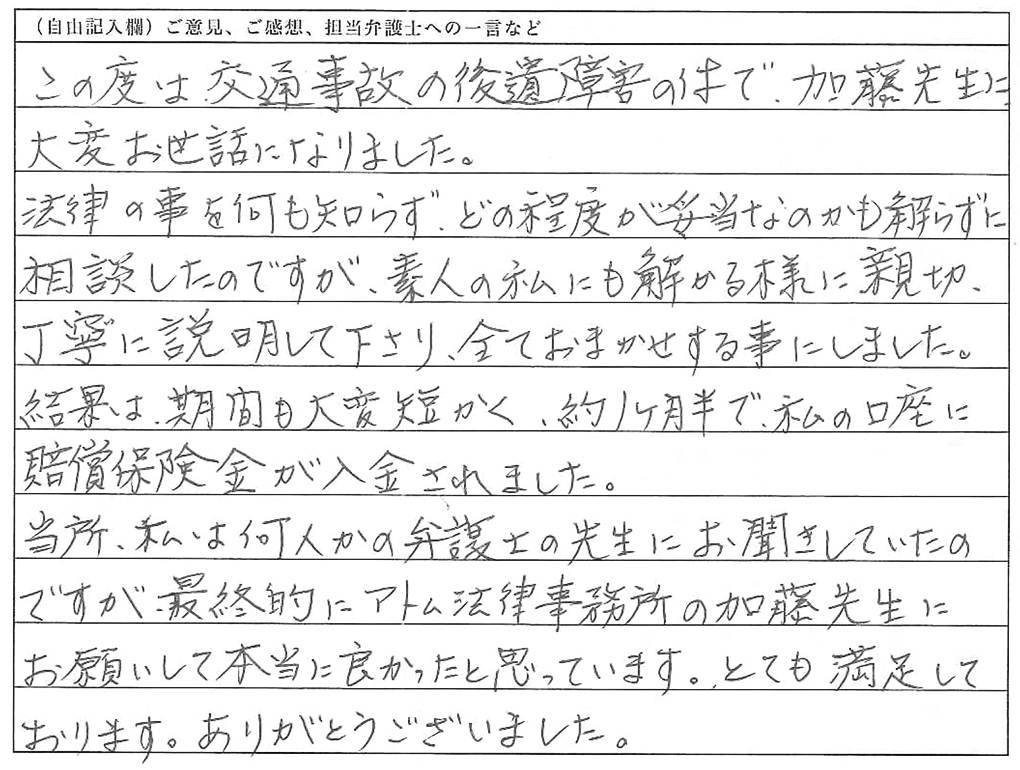 （自由記入欄）ご意見、ご感想、担当弁護士への一言など
この度は、交通事故の後遺障害の件で、加藤先生に
大変お世話になりました。
法律の事を何も知らず、どの程度が妥当なのかも解らずに
相談したのですが、素人の私にも解かる様に親切、
丁寧に説明して下さり、全ておまかせする事にしました。
結果は、期間も大変短かく、約1ヶ月半で、私の口座に
賠償保険金が入金されました。
当所、私は何人かの弁護士の先生にお聞きしていたの
ですが、最終的にアトム法律事務所の加藤先生に
お願いして本当に良かったと思っています。とても満足して
おります。ありがとうございました。